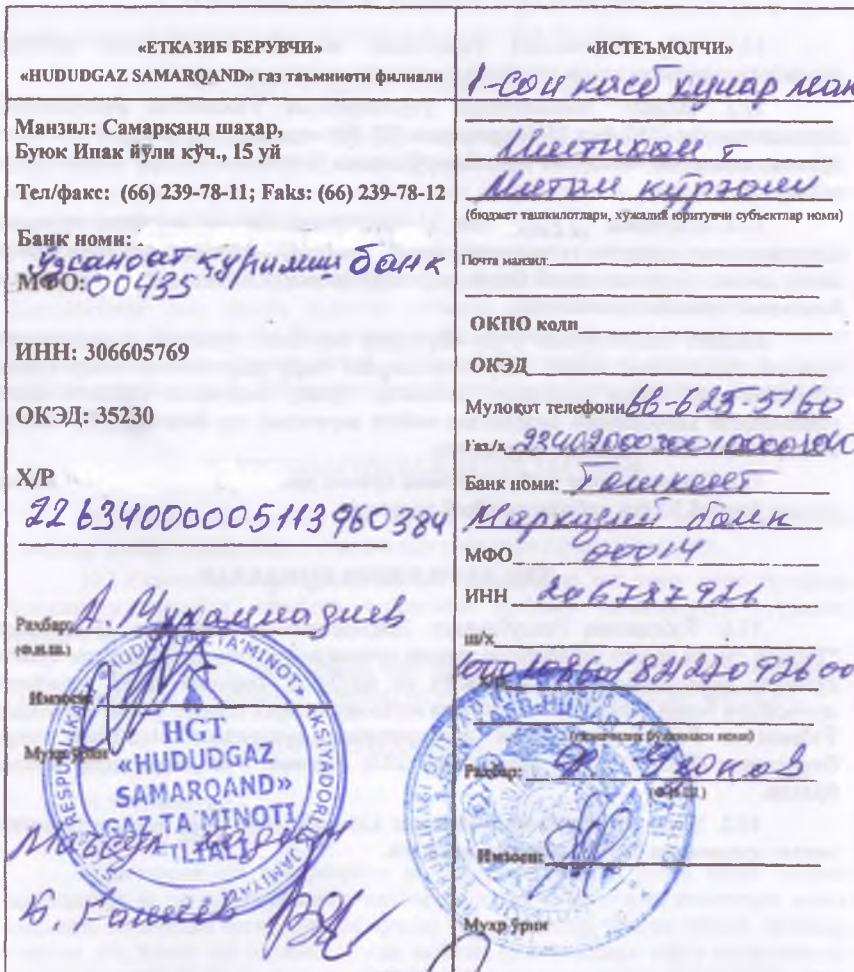 «ЕТКАЗИБ БЕРУВЧИ»
«HUDUDGAZ SAMARQAND» газ таъминоти филиали
Манзил: Самарқанд шаҳар,
Буюк Ипак йўли кўч., 15 уй
Тел/факс: (66) 239-78-11; Faks: (66) 239-78-12
Банк номи:
Ўзсаноатқурилиш банк
МФО: 00435
ИНН: 306605769
ОКЭД: 35230
Х/Р
22634000005113960384
Раҳбар: А. Мухаммадиев
(Ф.И.Ш.)
Имзоси:
Муҳр ўрни
HGT
«HUDUDGAZ
SAMARQAND»
GAZ TA'MINOTI
FILIALI
«ИСТЕЪМОЛЧИ»
1-сон касб хунар мак
Иштихон т
Митан кўрғони
(бюджет ташкилотлари, хўжалик юритувчи субъектлар номи)
Почта манзил
ОКПО коди
ОКЭД
Мулоқот телефони 66-625-5160
Ғаз/х
Банк номи: Тошкент
Марказий банк
МФО 00014
ИНН 206787926
Ш/Х
Раҳбар:
(Ф.И.Ш.)
Имзоси:
Муҳр ўрни